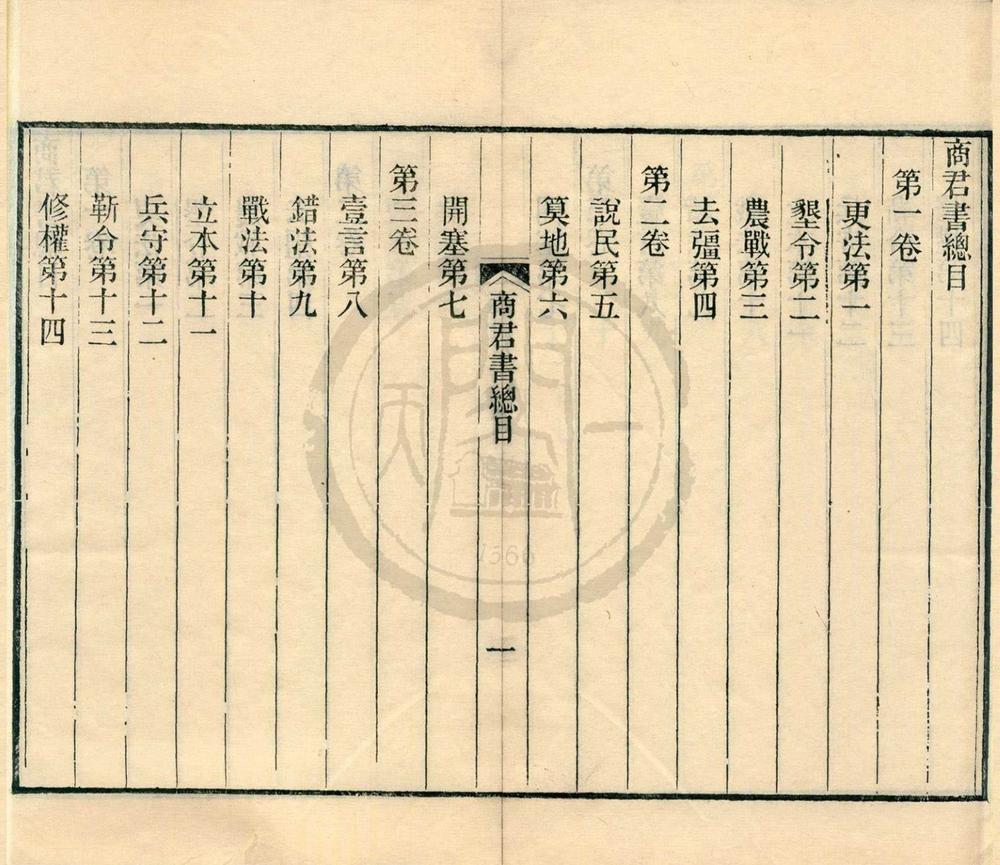 商君書總目
第一卷
更法第一
墾令第二
農戰第三
去彊第四
第二卷
說民第五
算地第六
開塞第七
商君書總目
一
第三卷
壹言第八
錯法第九
戰法第十
立本第十一
兵守第十二
靳令第十三
修權第十四
天一閣
1566